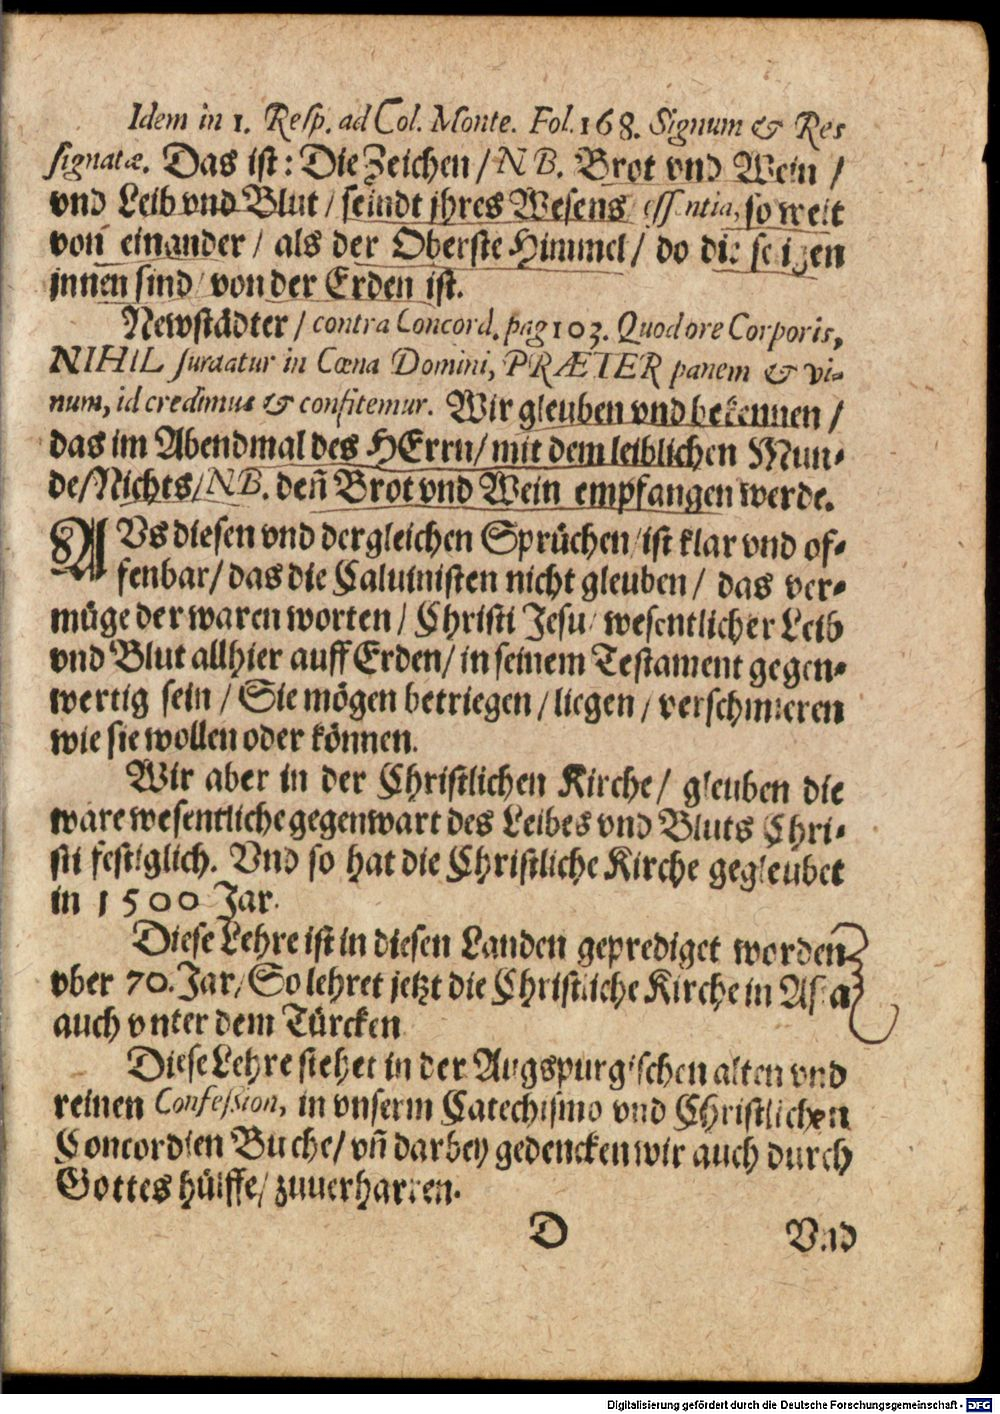 Idem in 1. Resp. ad Col. Monte. Fol. 168. Signum & Res
signatæ. Das ist: Die Zeichen / NB. Brot vnd Wein /
vnd Leib vnd Blut / seindt jhres Wesens essentia, so weit
von einander / als der Oberste Himmel / do die seligen
jnnen sind / von der Erden ist.
Newstädter / contra Concord. pag 103. Quod ore Corporis,
NIHIL sumatur in Cœna Domini, PRÆTER panem & vi-
num, id credimus & confitemur. Wir gleuben vnd bekennen /
das im Abendmal des HErrn / mit dem leiblichen Mun-
de / Nichts / NB. deñ Brot vnd Wein empfangen werde.
AVs diesen vnd dergleichen Sprüchen / ist klar vnd of-
fenbar / das die Caluinisten nicht gleuben / das ver-
müge der waren worten / Christi Jesu / wesentlicher Leib
vnd Blut allhier auff Erden / in seinem Testament gegen-
wertig sein / Sie mögen betriegen / liegen / verschmieren
wie sie wollen oder können.
Wir aber in der Christlichen Kirche / gleuben die
ware wesentliche gegenwart des Leibes vnd Bluts Chri-
sti festiglich. Vnd so hat die Christliche Kirche gegleubet
in 1500 Jar.
Diese Lehre ist in diesen Landen geprediget worden
vber 70. Jar / So lehret jetzt die Christliche Kirche in Asia
auch vnter dem Türcken
Diese Lehre stehet in der Augspurgischen alten vnd
reinen Confession, in vnserm Catechismo vnd Christlichen
Concordien Buche / vñ darbey gedencken wir auch durch
Gottes hülffe / zuuerharren.
D Vnd
Digitalisierung gefördert durch die Deutsche Forschungsgemeinschaft - DFG